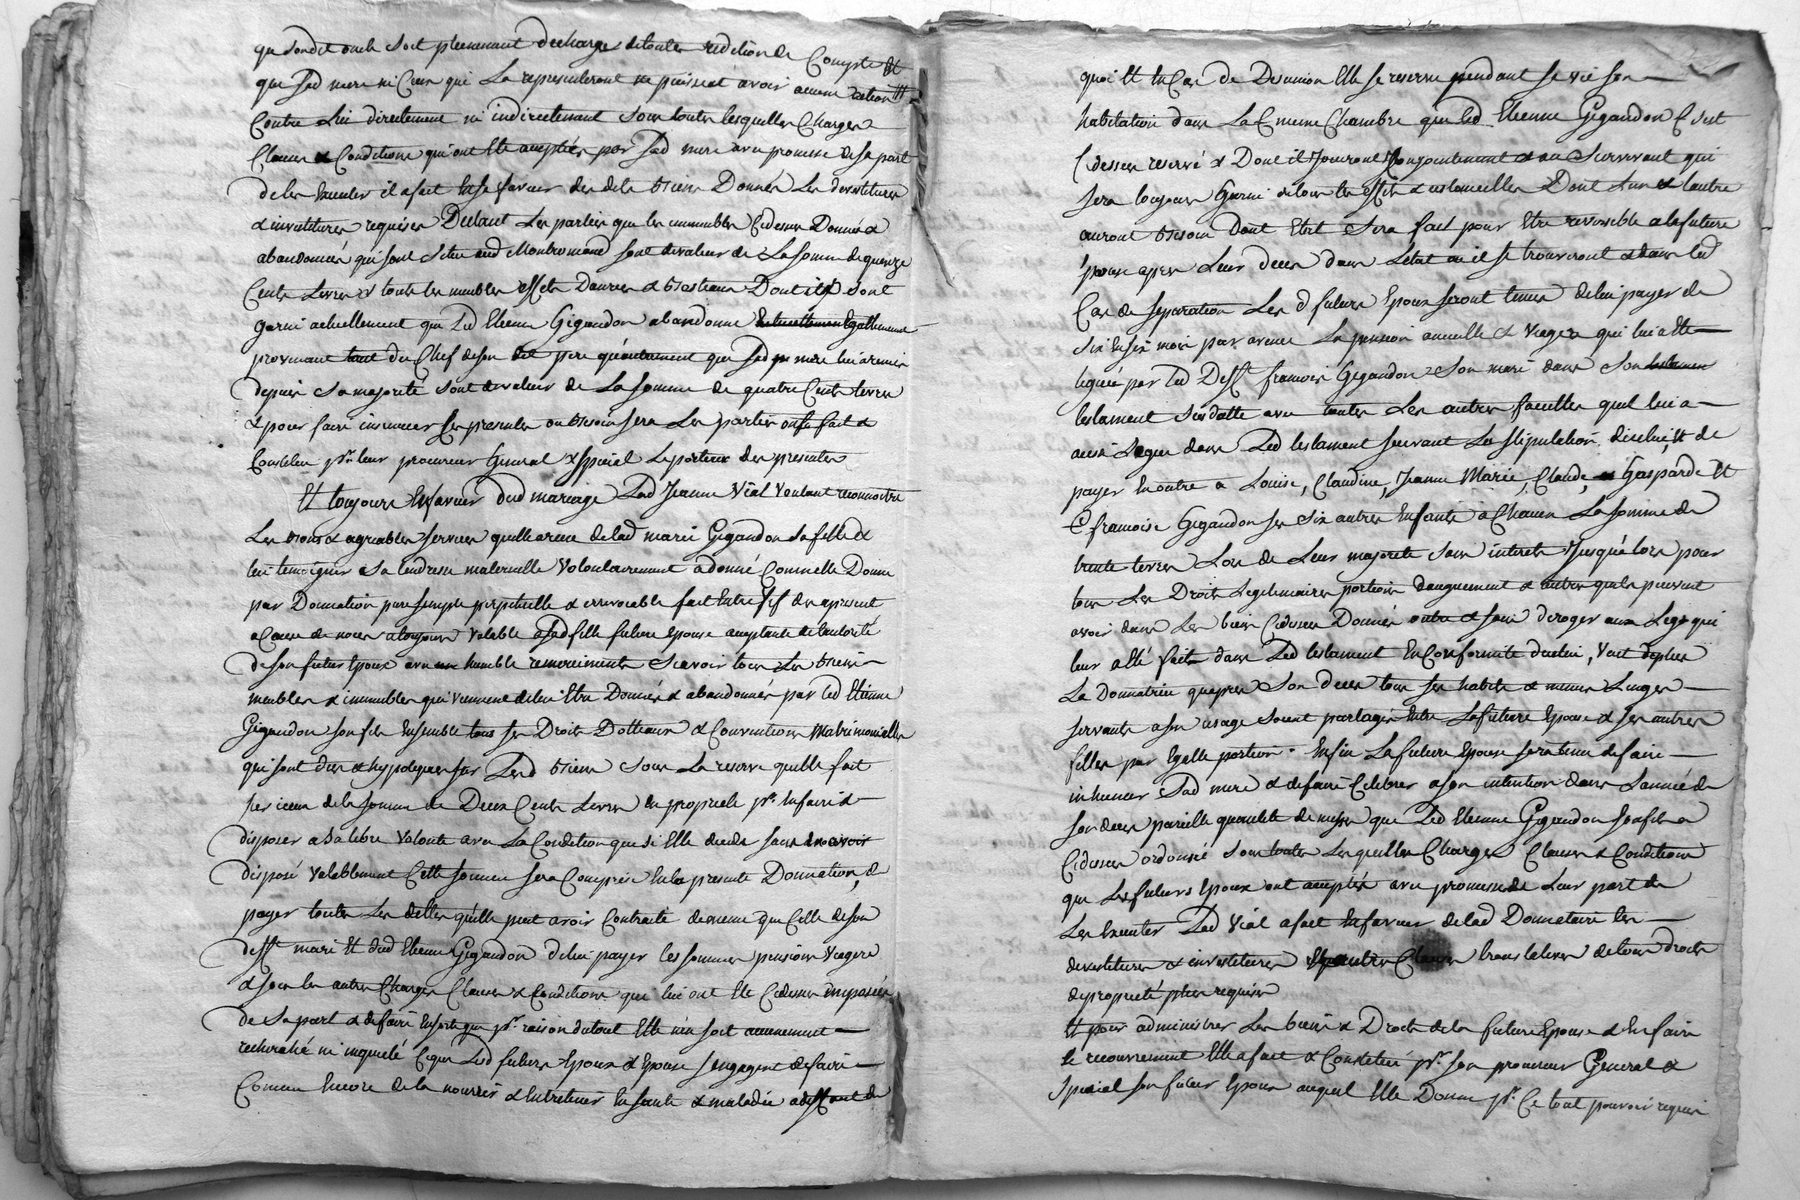 que sondit oncle soit pleinement decharge de toute redition de Compte Et
que lad mere ni Ceux qui La representeront ne puissent avoir aucune action
Contre Lui directement ni indirectement sous toutes lesquelles Charges
Clauses & Conditions qui ont Eté acceptées par lad mere avec promesse de sa part
de les Executer il a fait En sa faveur des dits Biens Donnés Les devestitures
& investitures requises Declarant Les parties que les immeubles Cidessus Donnés &
abandonnés qui sont Situé aud Montromand sont de valeur de La somme de quinze
Cents Livres & toute les meubles effets Danrées & Bestiaux Dont ils sont
garni actuellement que Led Etienne Gigandon abandonne
provenant du Chef de son dit pere qu'autrement que lad mere lui a remis
depuis sa majorité sont de valeur de La somme de quatre Cents Livres
& pour faire insinuer les presentes ou Besoin sera Les parties ont fait &
Constitué pr leur procureur General & special Le porteur des presentes
Et toujours En faveur dud mariage Lad Jeanne Vial Voulant reconnoitre
Les Bons & agreables services qu'elle a reçue de lad marie Gigandon sa fille &
lui temoigner sa tendresse maternelle Volontairement a donné Comme Elle Donne
par Donnation pure simple perpetuelle & irrevocable fait Entre Vif des apresent
a Cause de noces a toujours Valable a lad fille future Epouse acceptante de l'autorité
de son futur Epoux avec humble remerciments Scavoir tous Les Biens
meubles & immeubles qui viennent de lui Etre Donnés & abandonnés par led Etienne
Gigandon son fils Ensemble tous ses Droits Dottaux & Conventions Matrimonielles
qui sont dus & hypotequés sur Lesd Biens Sous La reserve qu'elle fait
de la somme de Deux Cents Livres En propriete pr En faire &
disposer a sa libre Volonté avec La Condition que si Elle decede sans En avoir
disposé Valablement Cette somme sera Comprise En la presente Donnation, de
payer toutes Les dettes qu'elle peut avoir Contracté de meme que Celle de son
deft mari Et dud Etienne Gigandon de lui payer les sommes pension Viagere
& sous les autres Charges Clauses & Conditions qui lui ont Eté Cidessus imposées
de Sa part & de faire Ensorte que pr raison du tout Elle n'en soit aucunement
recherché ni inquieté Ce que Lesd futurs Epoux & Epouse s'engagent de faire
Comme Encore de la nourrir & Entretenir En santé & maladie a deffaut de
quoi Et En Cas de Desunion Elle se reserve pendant sa vie son
habitation dans La meme Chambre que led Etienne Gigandon s'est
Cidessus reservé & Dont il Jouiront Conjointement & au Survivant qui
sera toujours Garni de tous les effets & ustancilles Dont L'un & L'autre
auront Besoin Dont Etat Sera fait pour Etre reversible a la future
Epouse apres Leur deces dans L'etat ou il se trouveront & dans led
Cas de separation Les d futurs Epoux seront tenus de lui payer de
Six En six mois par avance La pension annuelle & Viagere qui lui a Eté
leguée par led Deft francois Gigandon Son mari dans Son
testament Susdatte avec toutes Les autres facultes quil lui a
aussi Legué dans Led testament suivant La stipulation d'icelui, Et de
payer En outre a Louise, Claudine, Jeanne Marie, Claude, Gasparde Et
francoise Gigandon ses Six autres Enfants a Chacun La somme de
trente Livres Lors de Leur majorité sans interets Jusqu'alors pour
tous Les Droits Legitimaires portion d'augment & autres quils peuvent
avoir dans Les biens Cidessus Donnés outre & sans deroger aux Legs qui
leur a Eté faits dans Led testament En Conformité d'icelui, Veut deplus
La Donnatrice qu'apres Son deces tous ses habits & menus Linges
servants a son usage Soient partagés Entre La future Epouse & ses autres
filles par Egalle portion. Enfin La future Epouse sera tenue de faire
inhumer Lad mere & de faire Celebrer a son intention dans L'année de
son deces pareille quantité de messes que Led Etienne Gigandon son fils a
Cidessus ordonné Sous toutes Lesquelles Charges Clauses & Conditions
que Les futurs Epoux ont acceptés avec promesse de Leur part de
Les Executer Lad Vial a fait En faveur de lad Donnataire les
devestitures & investitures translatives de tous droits
de propriété plus requises
Et pour administrer Les biens & Droits de la future Epouse & En faire
le recouvrement Elle a fait & Constitué pr Son procureur General &
special son futur Epoux auquel Elle Donne pr Ce tout pouvoir requis